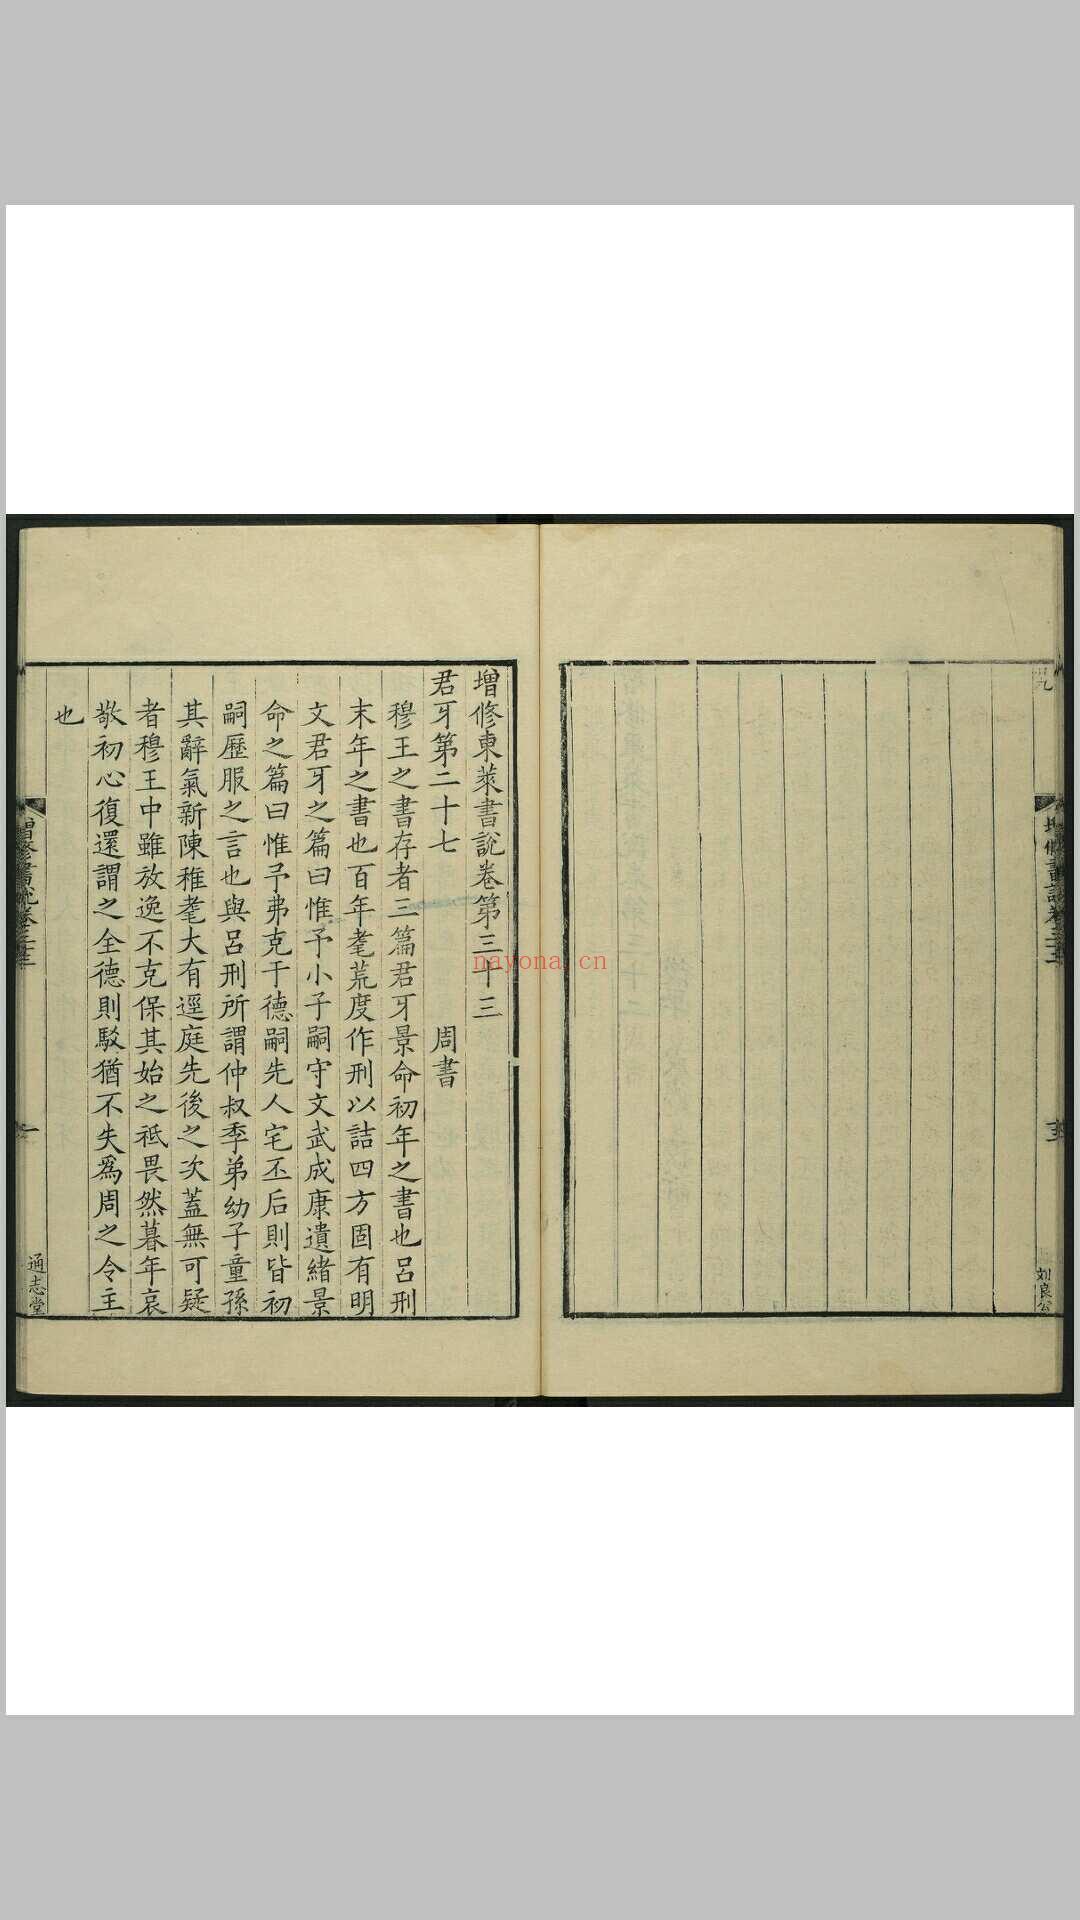 增修東萊書說卷第三十三
君牙第二十七　周書
穆王之書存者三篇君牙景命初年之書也呂刑
末年之書也百年耄荒度作刑以詰四方固有明
文君牙之篇曰惟予小子嗣守文武成康遺緒景
命之篇曰惟予弗克于德嗣先人宅丕后則皆初
嗣歷服之言也與呂刑所謂仲叔季弟幼子童孫
其辭氣新陳稚耄大有逕庭先後之次蓋無可疑
者穆王中雖放逸不克保其始之祗畏然暮年哀
敬初心復還謂之全德則駁猶不失爲周之令主
也
通志堂
刘良公
nayona.cn